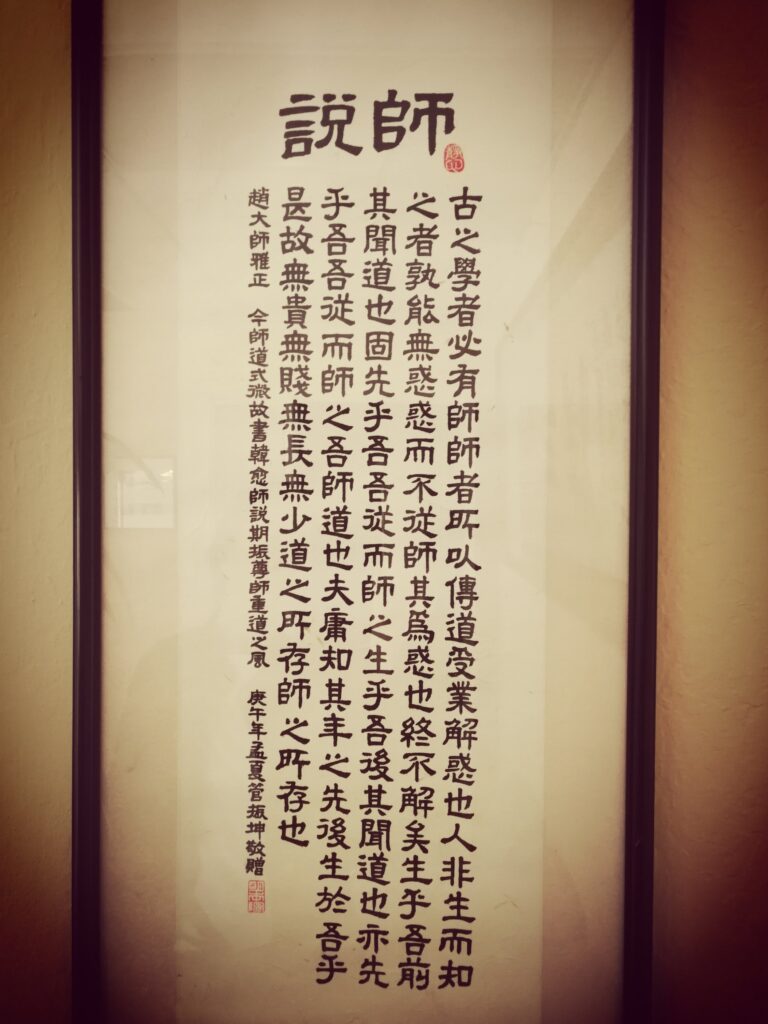 師說
古之學者必有師師者所以傳道受業解惑也人非生而知
之者孰能無惑惑而不從師其爲惑也終不解矣生乎吾前
其聞道也固先乎吾吾從而師之生乎吾後其聞道也亦先
乎吾吾從而師之吾師道也夫庸知其年之先後生於吾乎
是故無貴無賤無長無少道之所存師之所存也
趙大師雅正 今師道式微故書韓愈師說期振尊師重道之風 庚午年孟夏管振坤敬贈